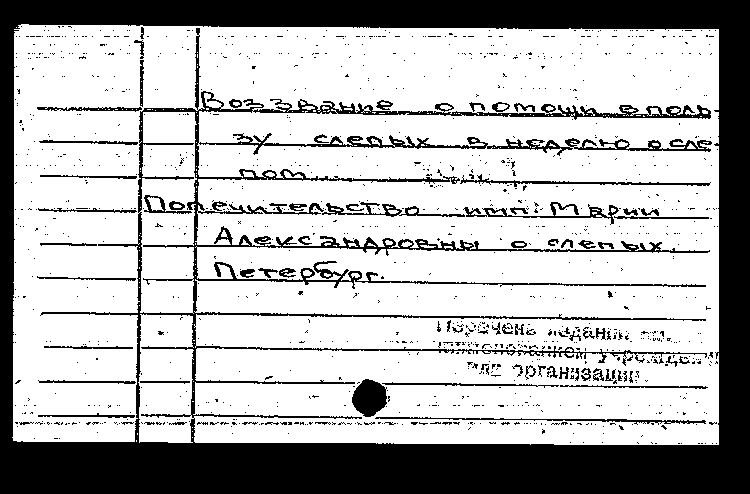 Воззвание о помощи в поль-
зу слепых в неделю о сле-
пом....
Попечительство имп. Марии
Александровны о слепых.
Петербург.
Перечень изданий см.
учрежден
организации